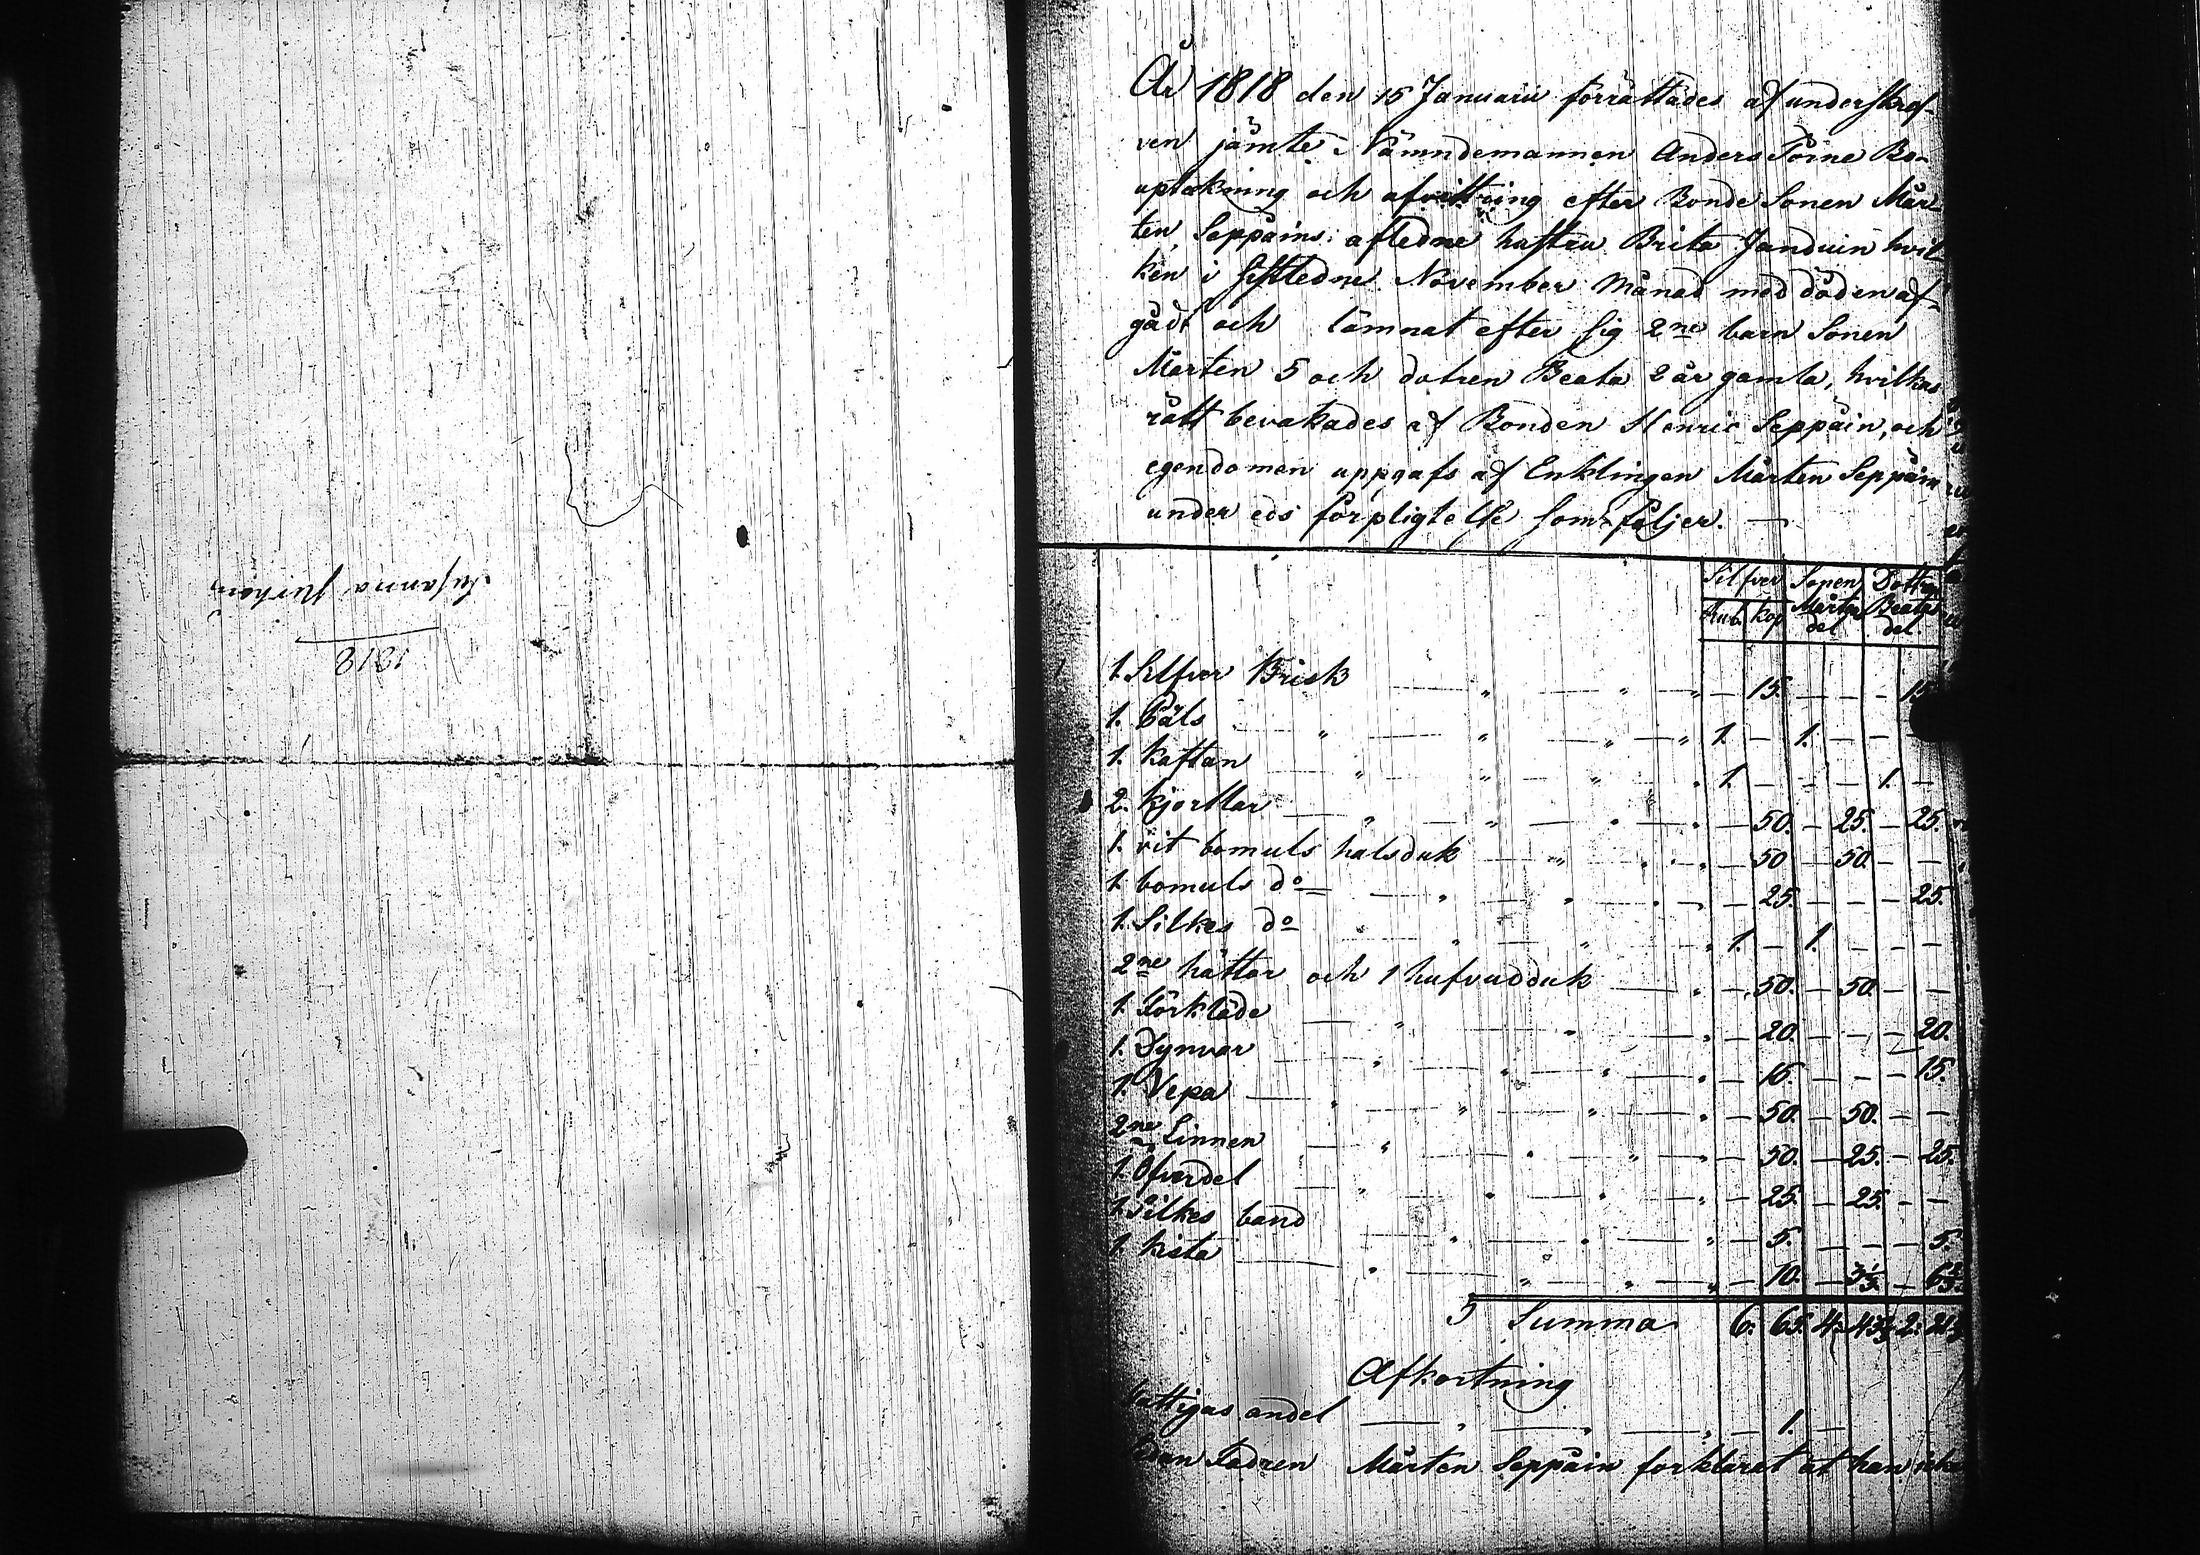 Susanna
1818
År 1818 den 15 Januarii förrättades af underskref-
ven jämte Nämndemannen Anders Törne Bo-
uptekning och afvittring efter Bonde Sonen Mår-
ten Seppäins afledne hustru Brita Janduin hvil-
ken i sistledne November Månad med döden af-
gådt och lämnat efter sig 2ne barn Sonen
Mårten 5 och dotren Beata 2 år gamla, hvilkas
rätt bevakades af Bonden Henric Seppäin, och
egendomen uppgafs af Enklingen Mårten Seppäin
under eds förpligtelse som följer. —
Silfver Sonen Mårtens del Dottren Beatas del.
Rub. kop
1. Silfver Brisk — 15. — — — 15.
1. Päls 1. — 1. — —
1. kaftan 1. — — — 1. —
2. kjortlar — 50. — 25. — 25.
1. vit bomuls halsduk — 50 — 50. — —
1 bomuls do — 25. — — — 25.
1. Silkes do 1. — 1. — — —
2ne hättor och 1 hufvudduk — 50. — 50 — —
1. Förkläde — 20. — — — 20.
1. Dynvar — 15. — — — 15.
1. Vepa — 50. — 50. — —
2ne Linnen — 50. — 25. — 25.
1. Öfverdel — 25. — 25. — —
1 Silkes band — 5. — — — 5.
1. kista — 10. — 3 1/3. — 6 2/3.
Summa 6. 65. 4. 2.
Afkortning
andel — 1. —
Fadren Mårten Seppäin forklarat at han icke